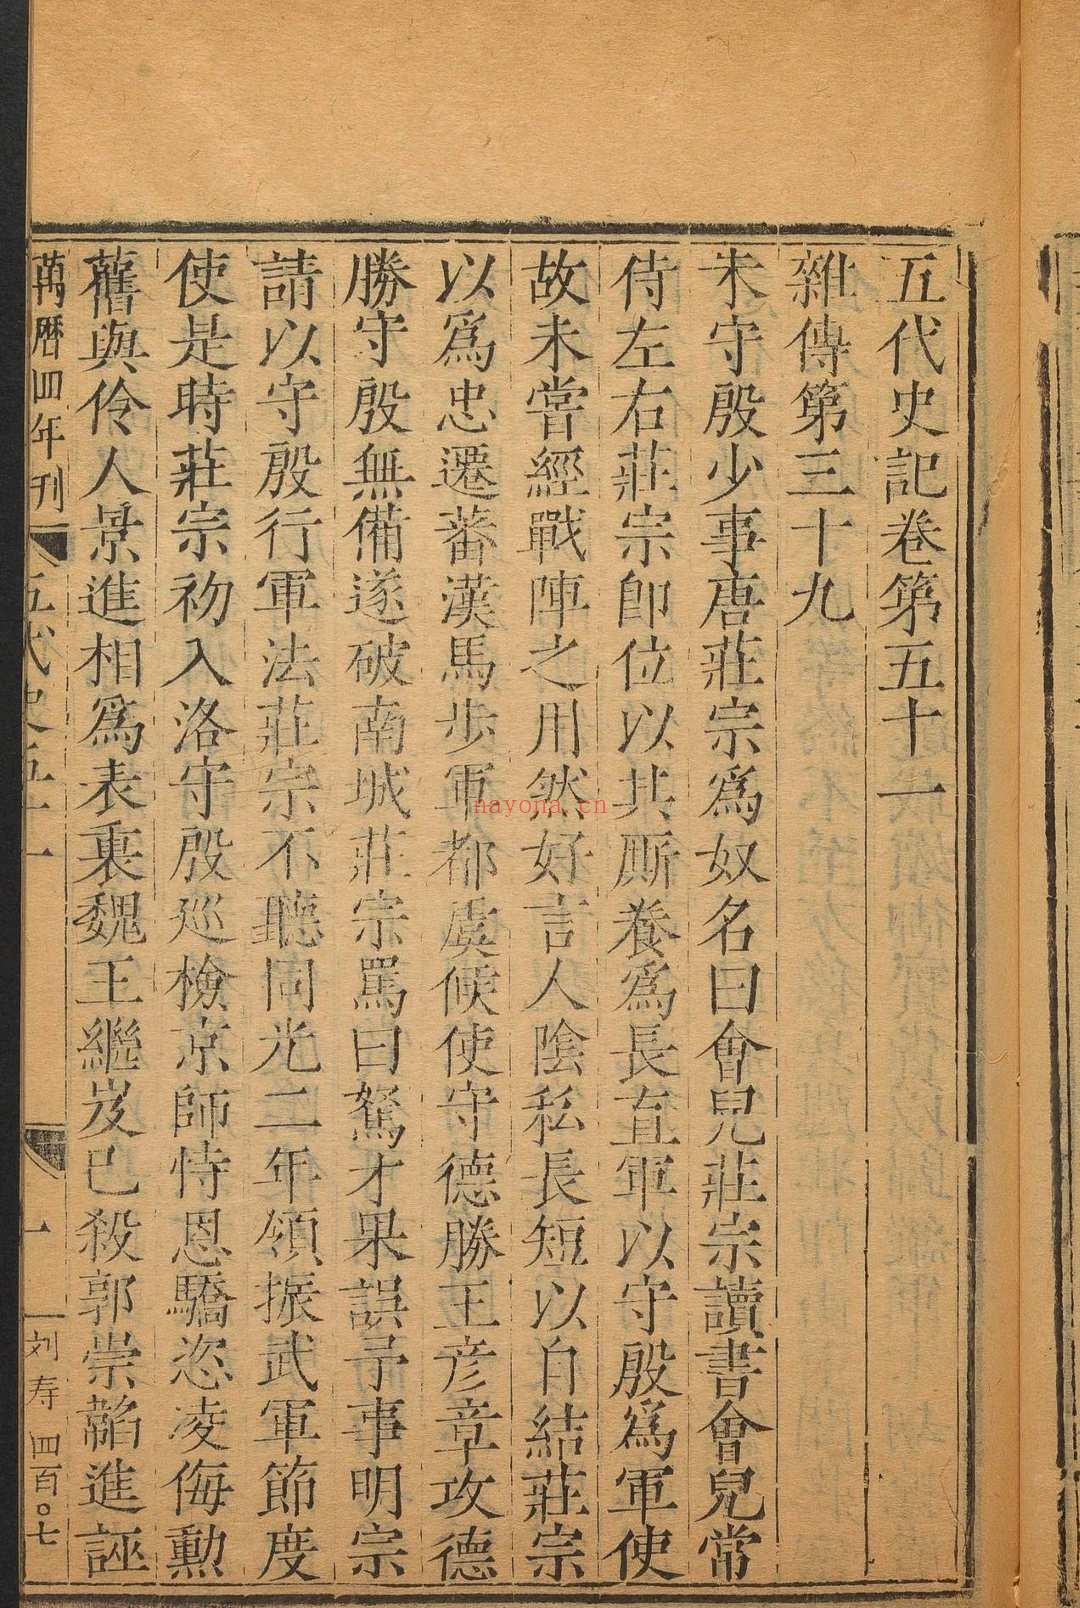 五代史記卷第五十一
雜傳第三十九
朱守殷少事唐莊宗爲奴名曰會兒莊宗讀書會兒常
侍左右莊宗即位以其厮養爲長直軍以守殷爲軍使
故未嘗經戰陣之用然好言人陰私長短以自結莊宗
以爲忠遷蕃漢馬步軍都虞候使守德勝王彥章攻德
勝守殷無備遂破南城莊宗罵曰駑才果誤予事明宗
請以守殷行軍法莊宗不聽同光二年領振武軍節度
使是時莊宗初入洛守殷巡檢京師恃恩驕恣凌侮勳
舊與伶人景進相爲表裏魏王繼岌已殺郭崇韜進誣
萬曆四年刊
五代史五十一
一
刘寿 四百〇七
nayona.cn